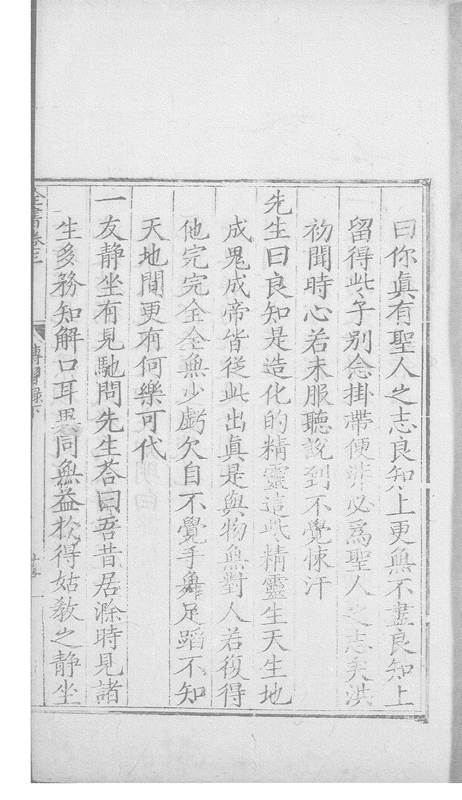 曰你真有聖人之志良知上更無不盡良知上
留得些子别念掛帶便非必爲聖人之志矣洪
初聞時心若未服聽說到不覺悚汗
先生曰良知是造化的精靈這些精靈生天生地
成鬼成帝皆從此出真是與物無對人若復得
他完完全全無少虧欠自不覺手舞足蹈不知
天地間更有何樂可代
一友静坐有見馳問先生荅曰吾昔居滁時見諸
生多務知解口耳異同無益於得姑教之静坐
全書卷三
傳習録下